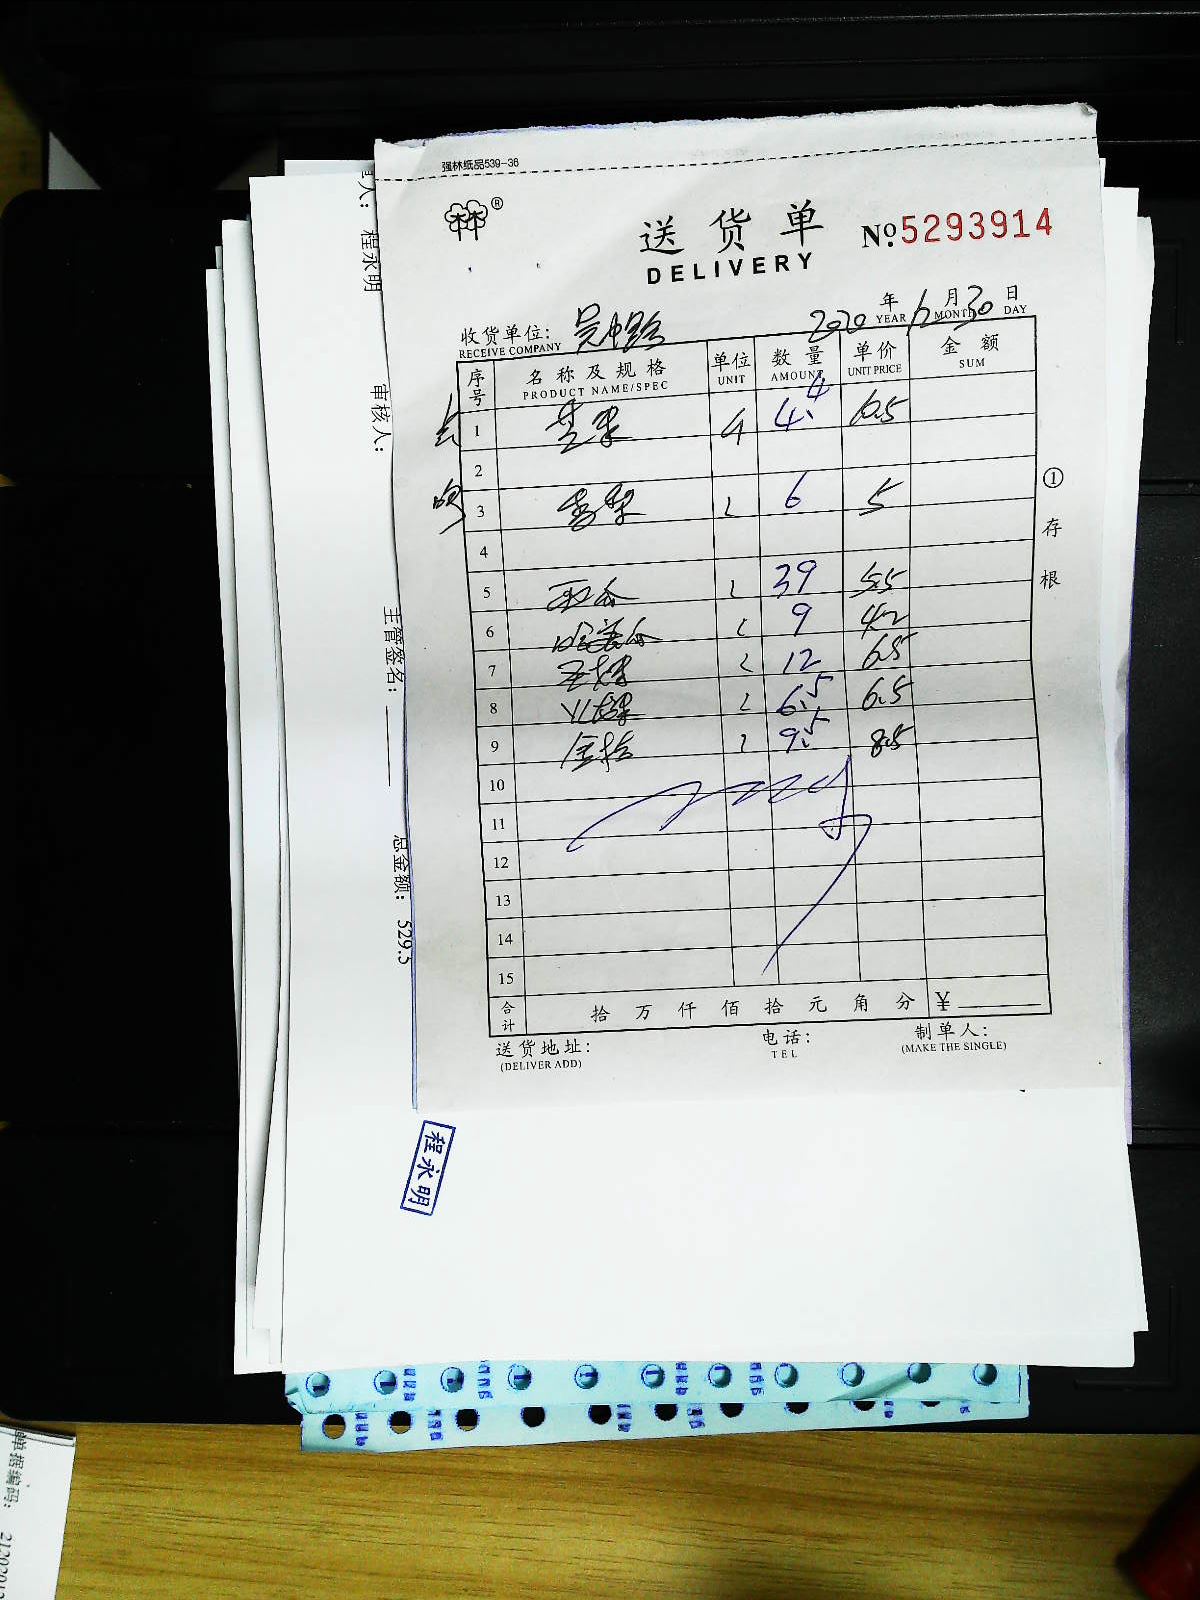 强林纸品539-36
送货单 №5293914
DELIVERY
收货单位:
RECEIVE COMPANY
2020 年 YEAR 月 MONTH 30 日 DAY
序号 名称及规格 单位 数量 单价 金额
PRODUCT NAME/SPEC UNIT AMOUNT UNIT PRICE SUM
1 4.4
2
3 香梨 6 5
4
5 西瓜 39 5.5
6 哈美瓜 9 4.2
7 12 6.5
8 6.5 6.5
9 9.5 8.5
10
11
12
13
14
15
合计 拾 万 仟 佰 拾 元 角 分 ¥
送货地址:
(DELIVER ADD)
电话:
TEL
制单人:
(MAKE THE SINGLE)
①存根
人: 程永明
审核人:
主管签名:
总金额: 529.5
程永明
单据编码: